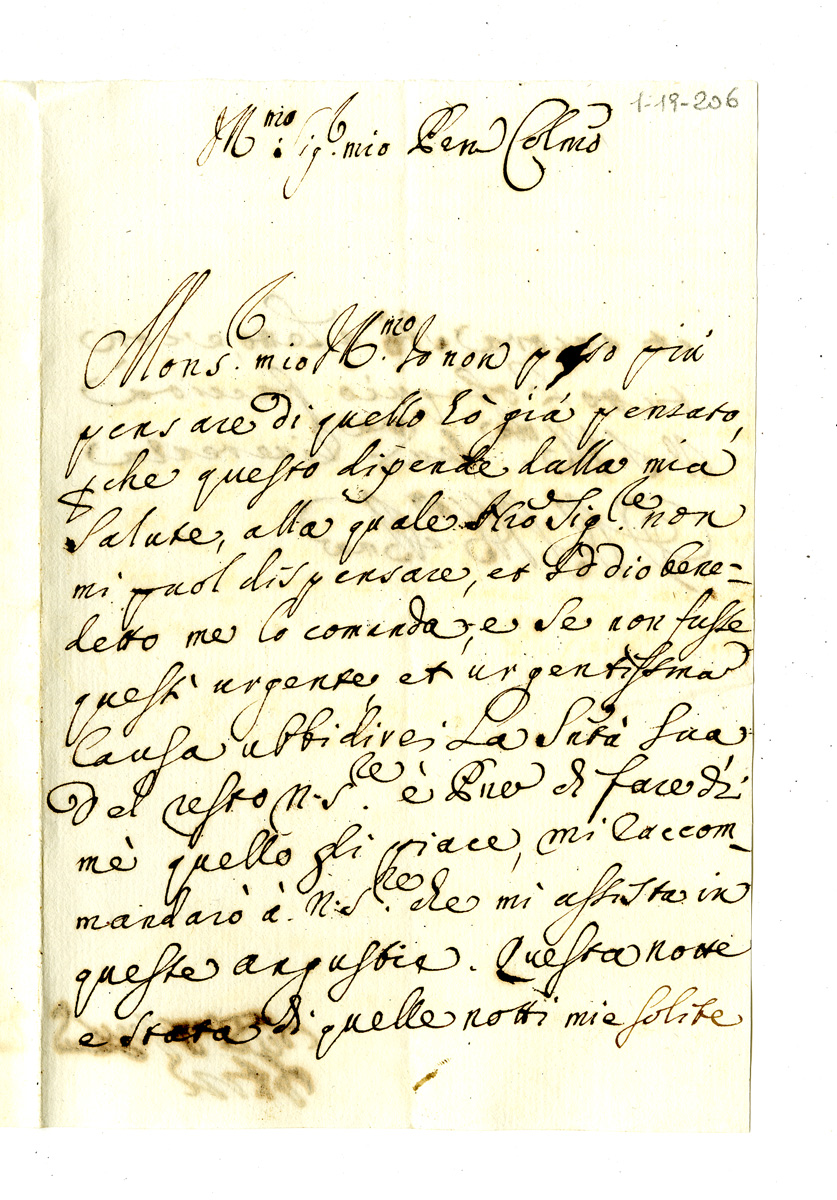 1-19-206
Ill.mo Sig.r mio Pen Colmo
Mons.r mio Ill.mo Io non posso più
pensare di quello hò già pensato,
che questo dipende dalla mia
salute, alla quale Sig.re non
mi puol dispensare, et Iddio bene=
detto me lo comanda, e se non fusse
questi urgente, et urgentissma
causa ubbidirei La Sntà Sua
Del resto N.S.re è Pne di fare di
mè quello gli piace, mi raccom_
mandarò à N.S.re che mi assista in
queste angustie. Questa notte
e stata di quelle notti mie solite